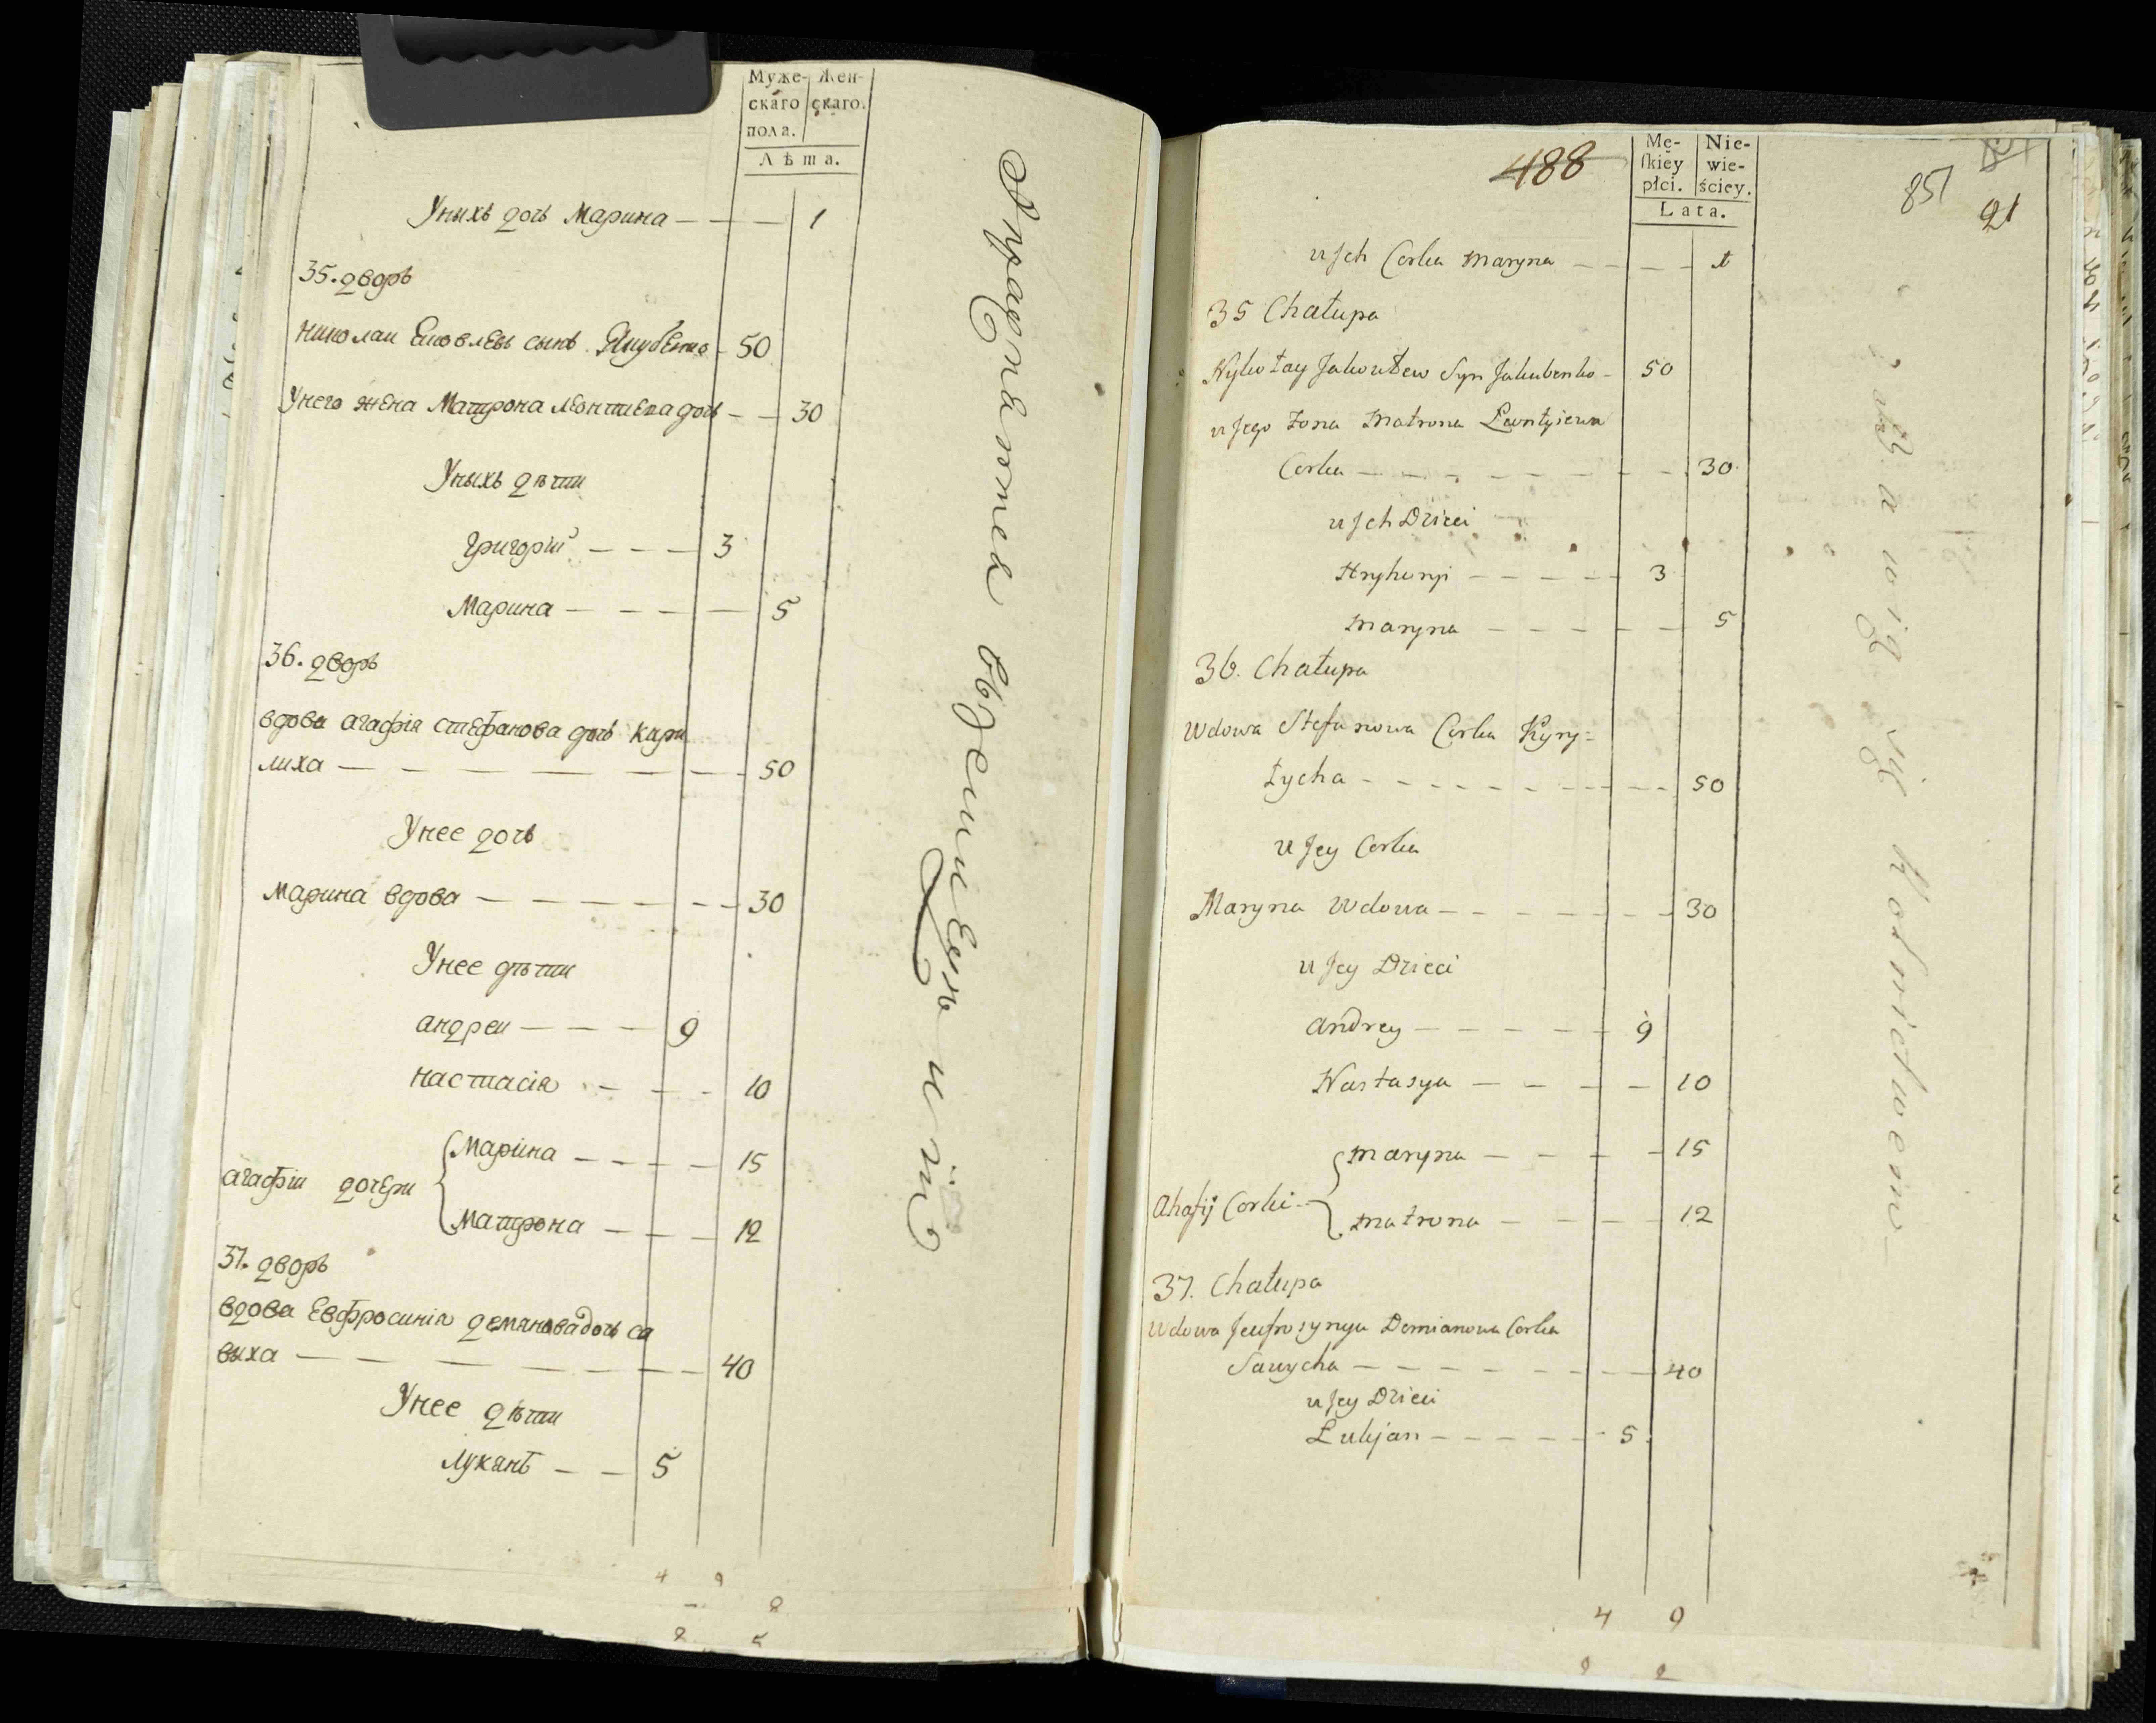 Муже- Жен-
скаго скаго.
пола.
Лѣта.
Уныхъ дочь Марина — — — 1
35. дворъ
Николаи Яковлевъ сынъ Якубенко - 50
Унего жена Матрона Леонтиева дочь — — 30
Уныхъ дѣти
Григорій — — — 3
Марина — — — — 5
36. дворъ
вдова агафія стефанова дочь Кири
лиха — — — — — — — 50
Унее дочь
Марина вдова — — — — — — — 30
Унее дѣти
андреи — — — — 9
настасія — — — 10
Марина — — — — 15
агафіи дочери
Матрона — — — 12
37. дворъ
вдова Евфросинія демянова дочь са
виха — — — — — — — 40
Унее дѣти
Лукянъ — — 5
488
Mę- Nie-
skiey wie-
płci. ściey.
Lata.
851
21
u Jch Corka Maryna — — — — 1
35 Chałupa
Nykołay Jakowłew Syn Jakubenko - 50
u Jego Żona Matrona Leontyiewa
Corka — — — — — — — — 30
u Jch Dzieci
Hryhoryi — — — — — 3
Maryna — — — — — 5
36. Chałupa
Wdowa Stefanowa Corka Kyry=
łycha — — — — — — — — — 50
u Jey Corka
Maryna Wdowa — — — — — — — 30
u Jey Dzieci
Andrey — — — — — 9
Nastasya — — — — 10
Maryna — — — — 15
Ahafij Corki
Matrona — — — — 12
37. Chałupa
Wdowa Jeufrosynya Demianowa Corka
Sawycha — — — — — — — — 40
u Jey Dzieci
Łukjan — — — — — 5
4 9
4 9